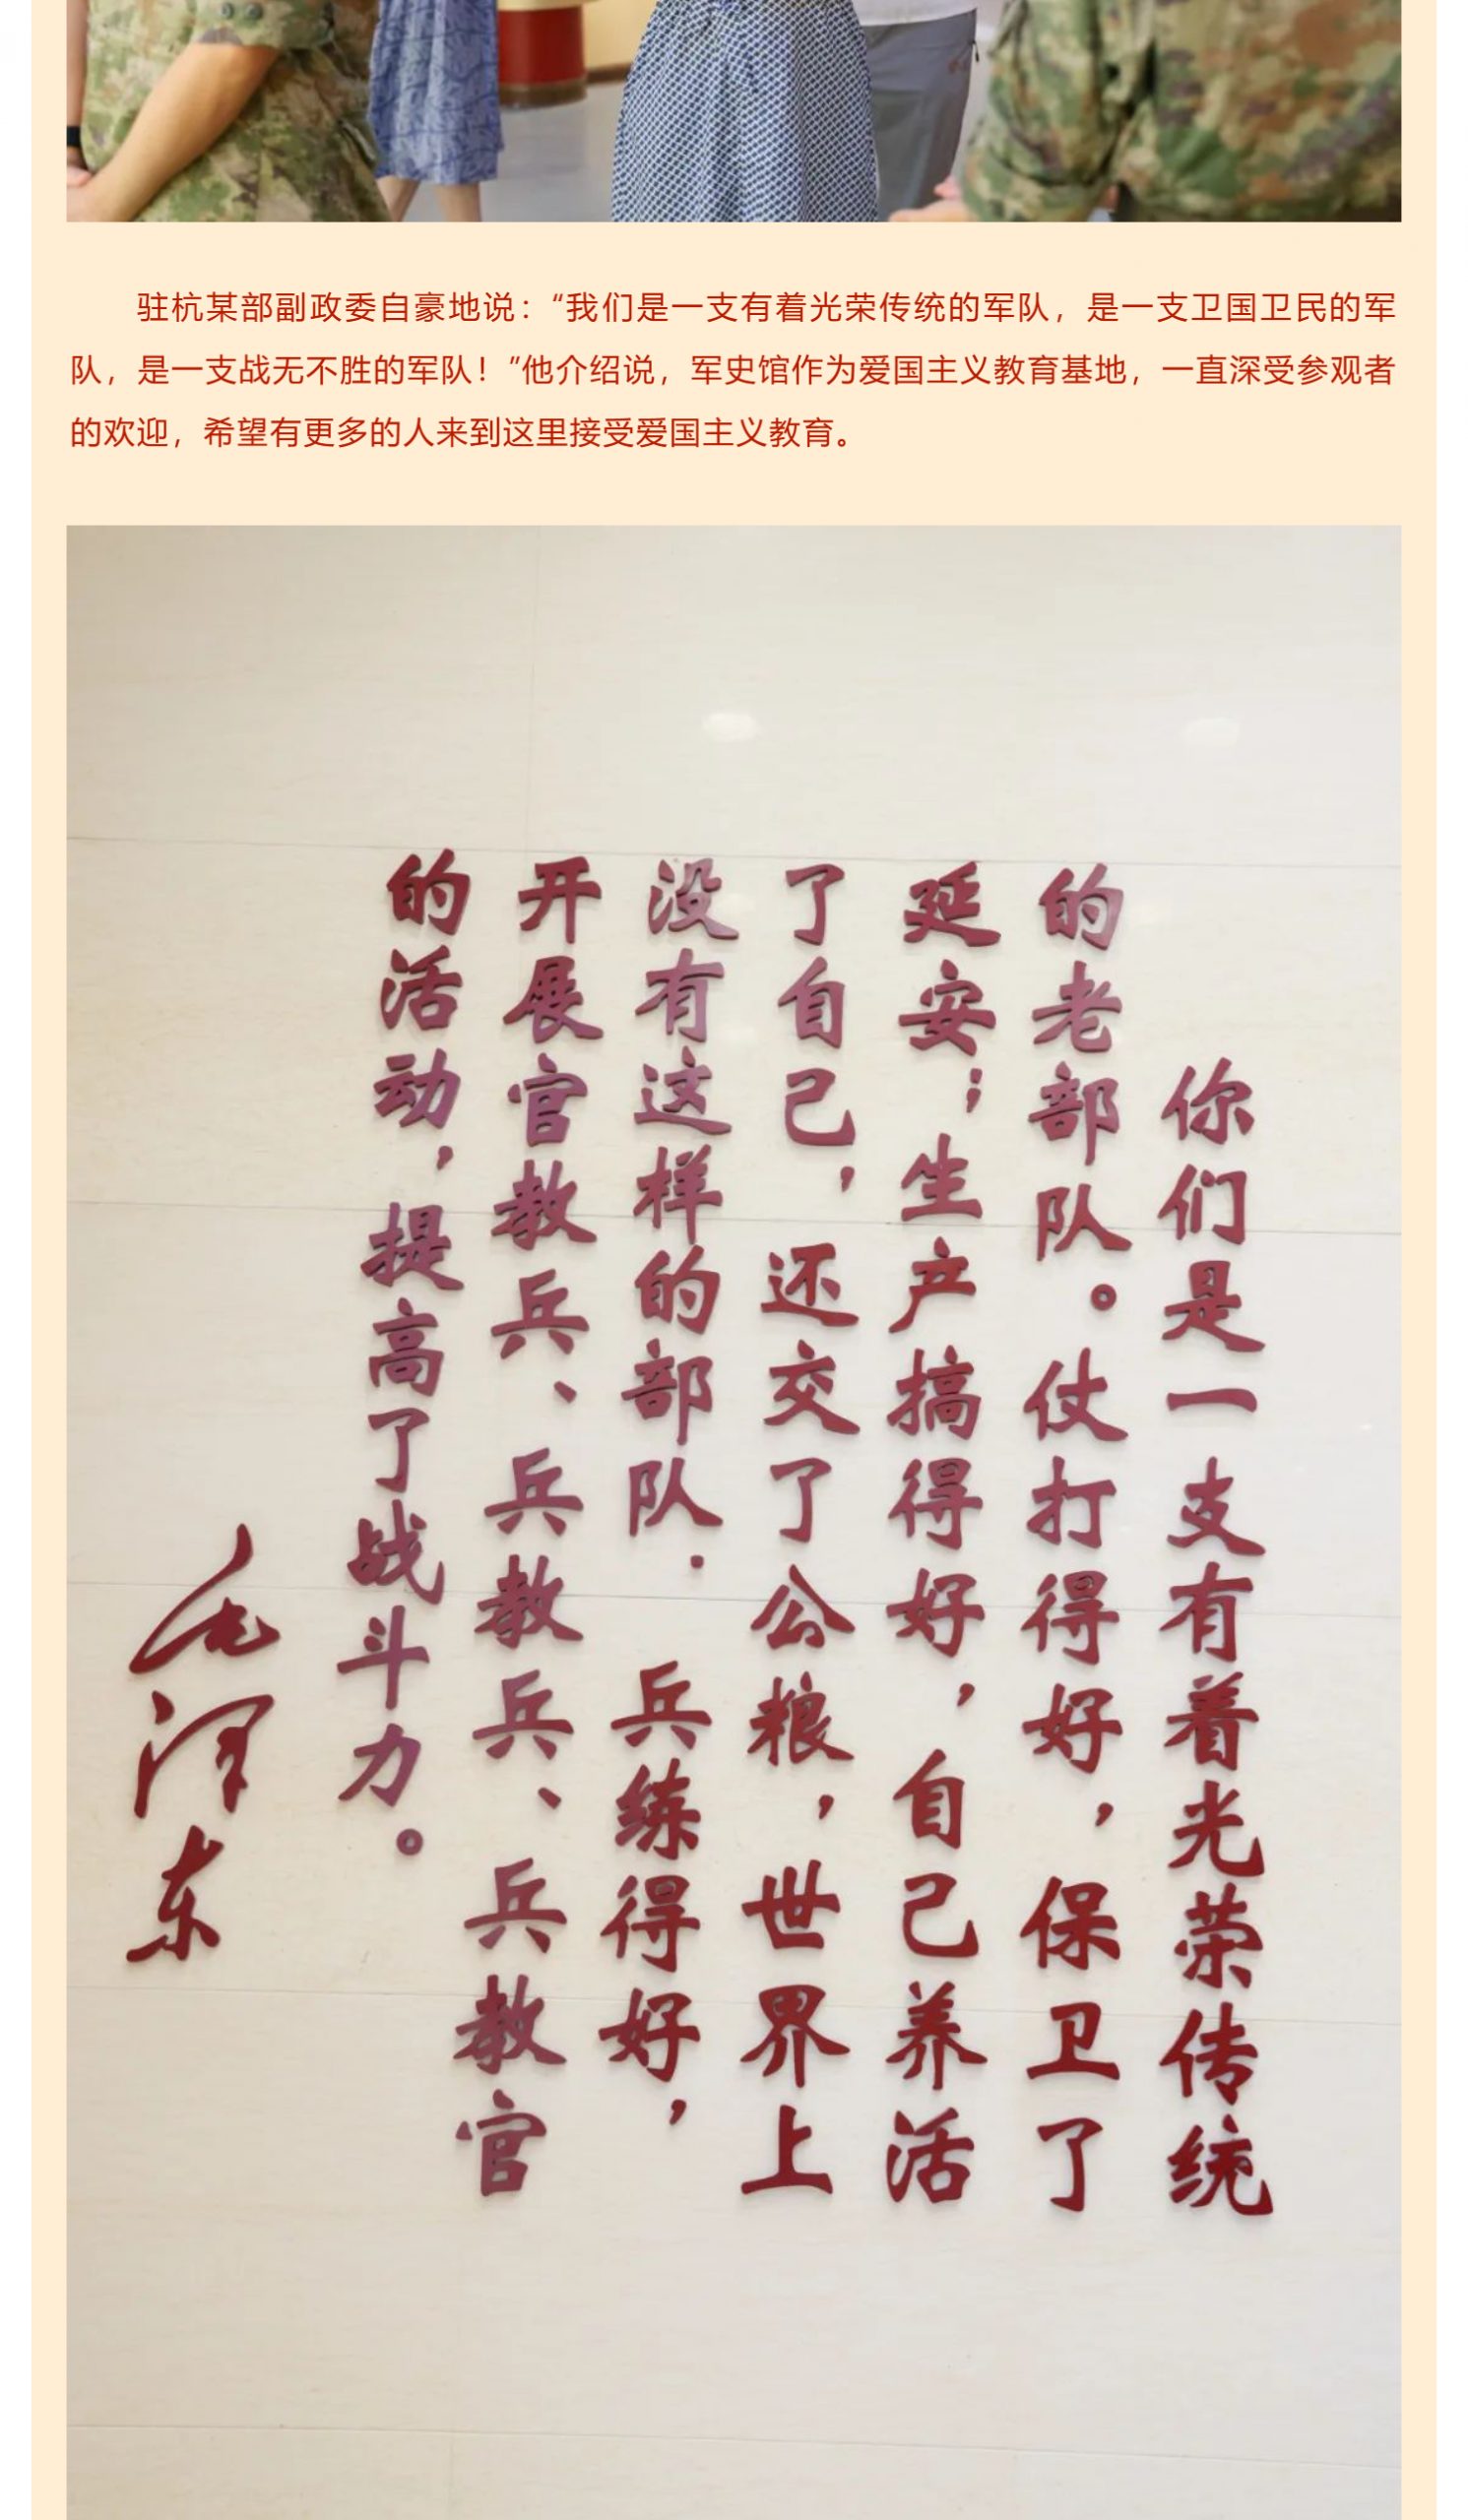 驻杭某部副政委自豪地说：“我们是一支有着光荣传统的军队，是一支卫国卫民的军
队，是一支战无不胜的军队！”他介绍说，军史馆作为爱国主义教育基地，一直深受参观者
的欢迎，希望有更多的人来到这里接受爱国主义教育。
你们是一支有着光荣传统
的老部队。仗打得好，保卫了
延安；生产搞得好，自己养活
了自己，还交了公粮，世界上
没有这样的部队．兵练得好，
开展官教兵、兵教兵、兵教官
的活动，提高了战斗力。
毛泽东